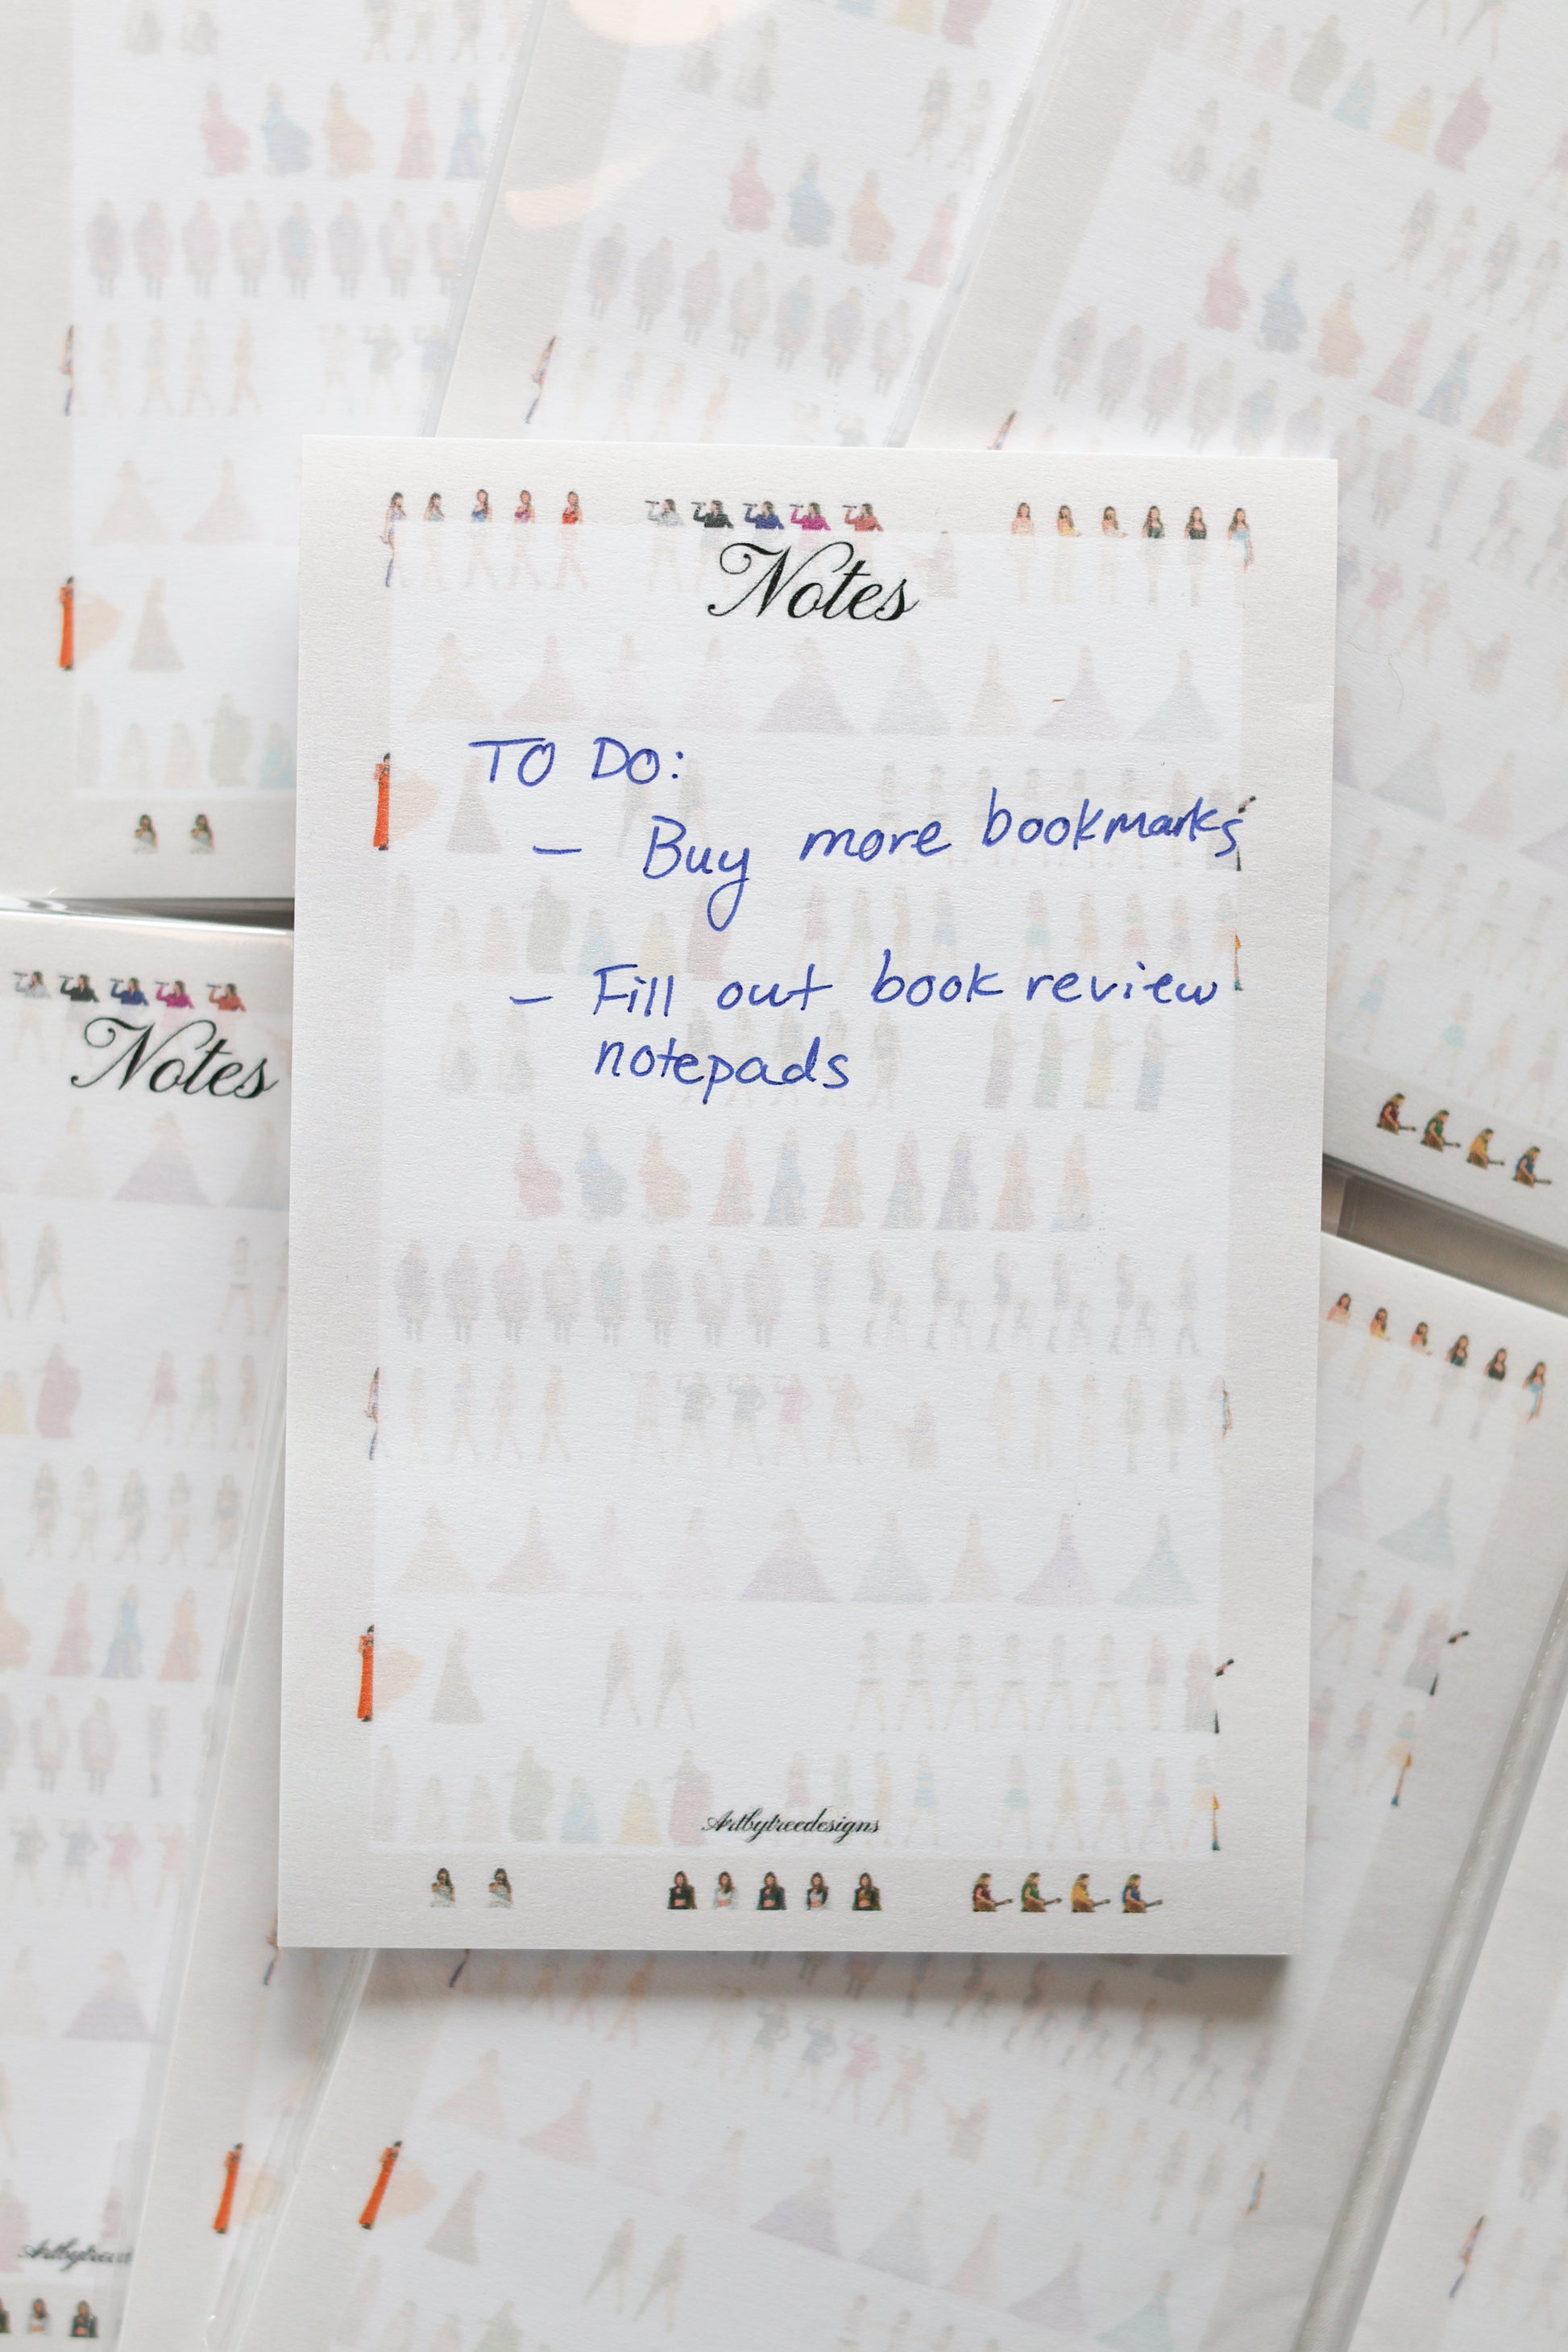 Notes
TO DO:
- Buy more bookmarks
- Fill out book review
notepads
Artbytreedesigns
Notes